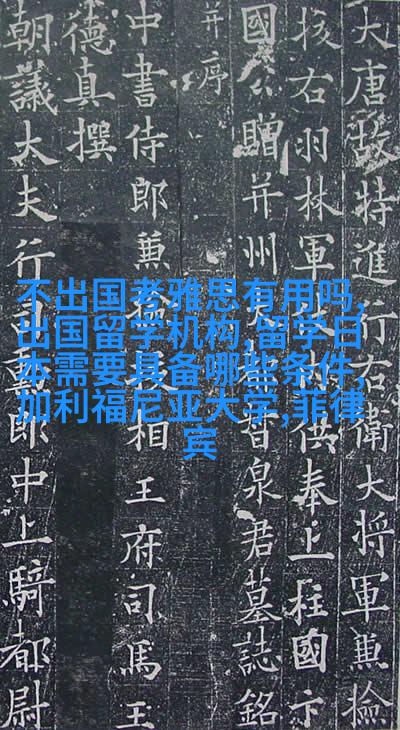 不出国考雅思有用吗,
出国留学机构,留学日
本需要具备哪些条件,
加利福尼亚大学,菲律
宾
大唐故特進行右衛大將軍兼撿
挍右羽林軍供奉上柱國卞
國公贈并州督泉君墓誌銘
并序
中書侍郎兼相王府司馬王
德真撰
朝議大夫行司勳郎中上騎都尉